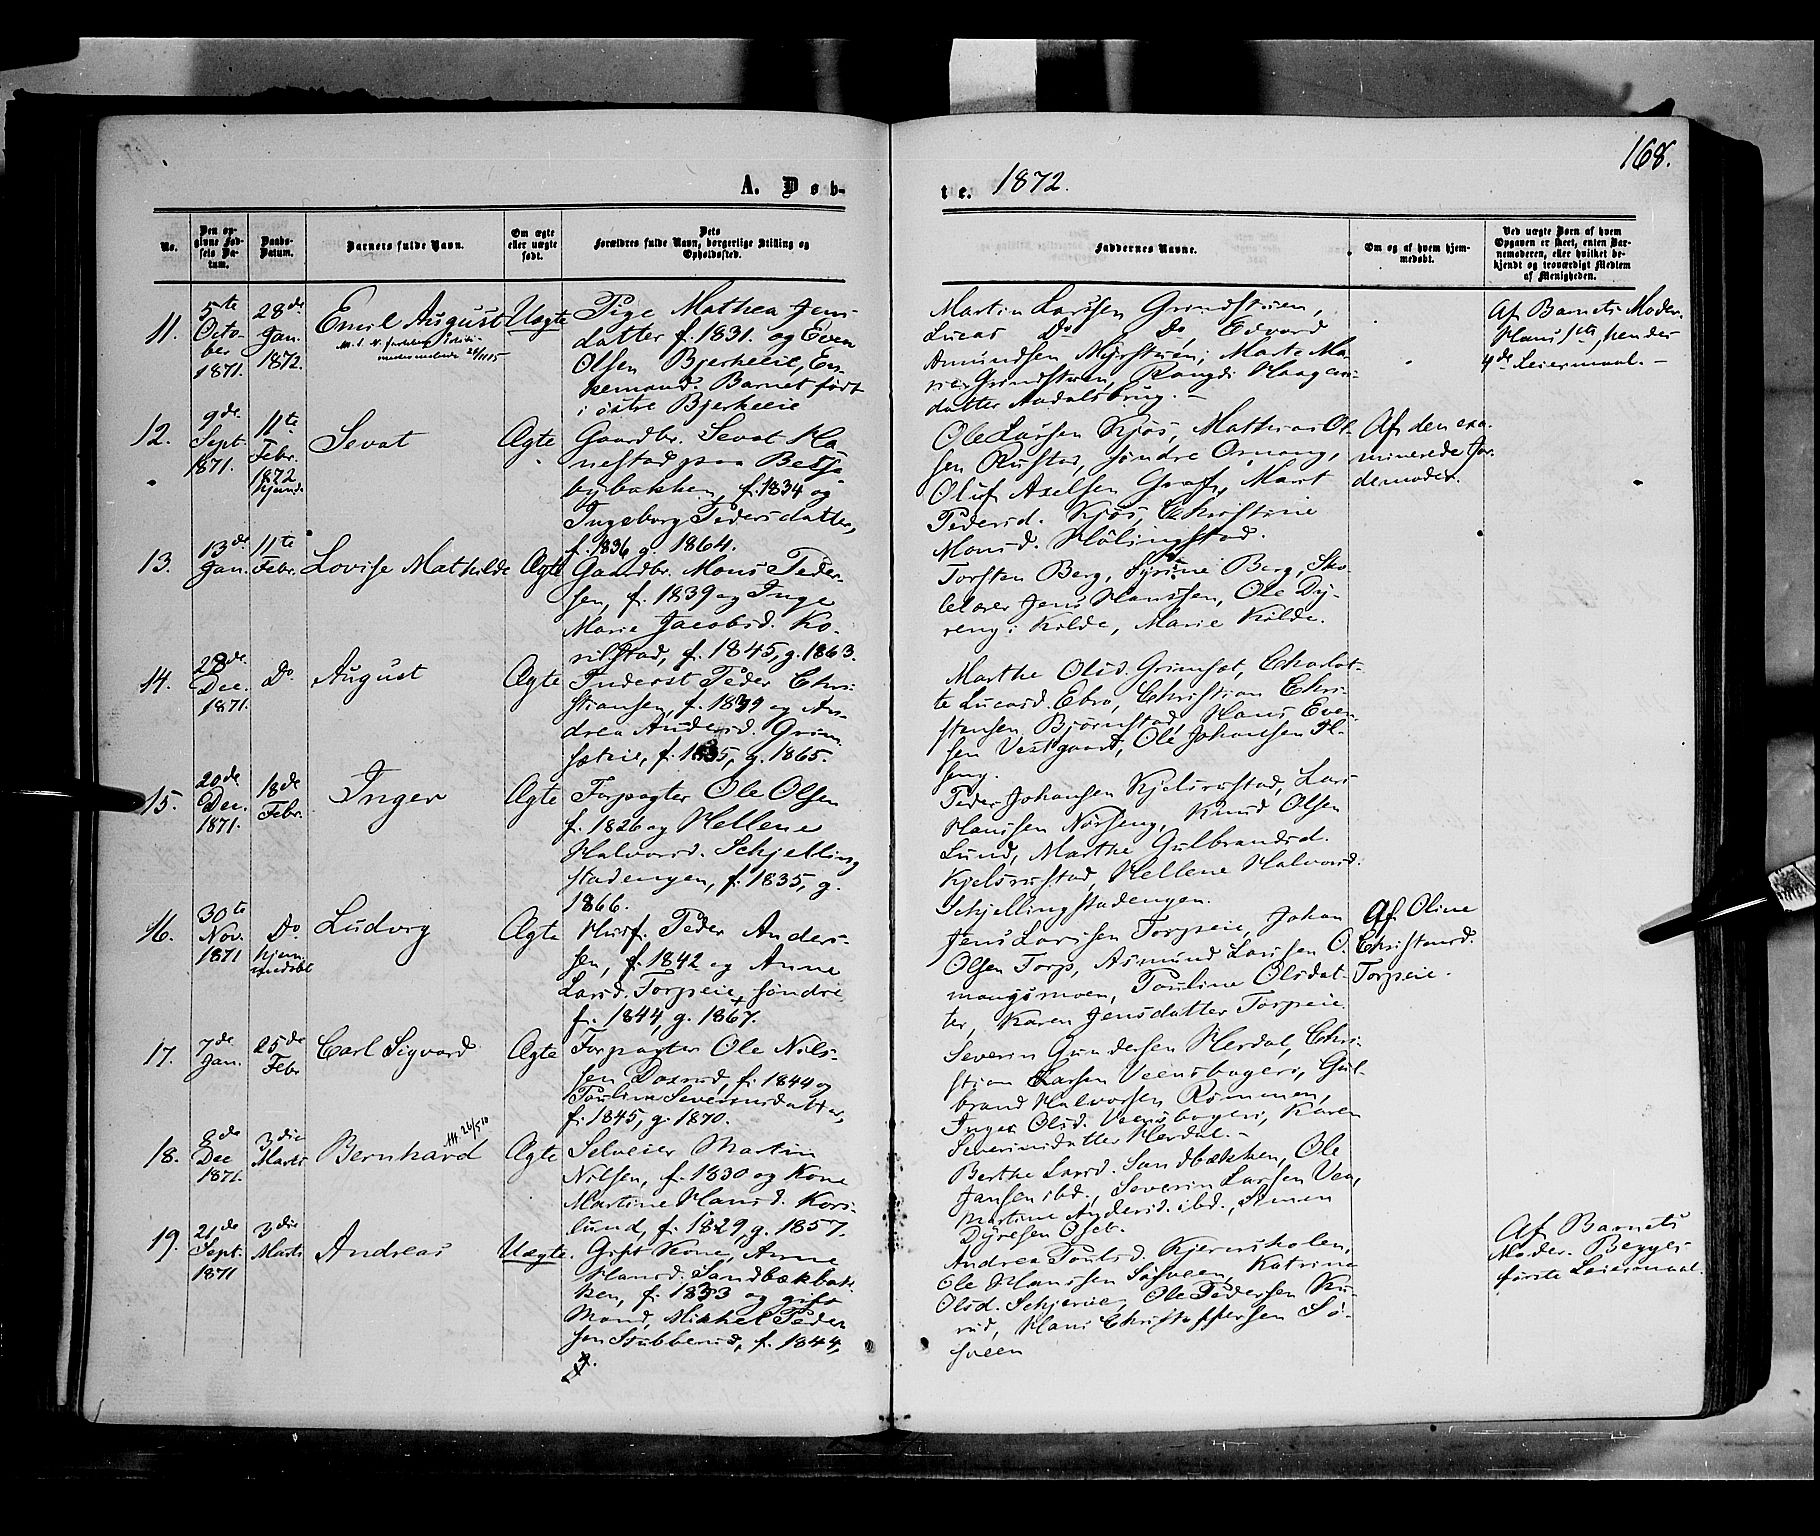 168.
A. Døb-
te. 1872.
No.
Den op-
givne Fød-
sels Da-
tum.
Daabs-
Datum.
Barnets fulde Navn.
Om ægte
eller uægte
født.
Dets
Forældres fulde Navn, borgerlige Stilling og
Opholdssted.
Faddernes Navne.
Om og af hvem hjem-
medøbt.
Ved uægte Børn af hvem
Opgaven er skeet, enten Bar-
nemoderen, eller hvilket be-
kjendt og troværdigt Medlem
af Menigheden.
11.
5te
Octo-
ber
1871.
28de
Jan.
1872.
Emil August
Uægte
Pige Mathea Jens-
datter f. 1831. og Even
Olsen Bjerkeeie, En-
kemand. Barnet født
i østre Bjerkeeie
Martin Larssen Grindstuen,
Lucas Do Do, Edvard
Amundsen Myrstuen, Marte Ma-
rie Grindstuen, Rangdi Haagens-
datter Aadalsbrug. -
Af Barnets Moder.
Hans 1ste, hendes
4de Leiermaal. -
12.
9de
Sept.
1871.
11te
Febr.
1872
hjemd.
Sevat
Ægte
Gaardbr. Sevat Ha-
nestad paa
bybakken, f. 1834 og
Ingeborg Pedersdatter,
f. 1836, g. 1864.
Ole Larsen Kjøs, Mathias Ol-
sen Rustad, søndre Ornang,
Oluf Axelsen Graff, Marit
Pedersd. Kjøs, Christine
Monsd. Hølingstad.
Af den exa-
minerede Jor-
demoder.
13.
13de
Jan.
11te
Febr.
Lovise Mathilde
Ægte
Gaardbr. Mons Peder-
sen, f. 1839 og Inge
Marie Jacobsd. Ko-
rilstad, f. 1845, g. 1863.
Torsten Berg, Syrine Berg, Sko-
lelærer Jens Hanssen, Ole Dy-
reng i Kilde, Marie Kilde.
14.
28de
Dec.
1871.
Do
August
Ægte
Inderst Peder Chri-
stiansen, f. 1839 og An-
drea Andersd. Grim-
sæteie, f. 1835, g. 1865.
Marthe Olsd. Grimset, Charlot-
te Lucasd. Ebro, Christian Chri-
stensen Bjørnstad, Hans Even-
sen Vestgaard, Ole Johansen H-
seng.
15.
20de
Dec.
1871.
18de
Febr.
Inger
Ægte
Forpagter Ole Olsen
f. 1826 og Hellene
Halvorsd. Schjelling
stadengen, f. 1835, g.
1866.
Peder Johansen Kjelsrustad, Lars
Hanssen Nørseng, Knud Olsen
Lund, Marthe Gulbrandsd.
Kjelsrustad, Hellene Halvorsd.
Schjellingstadengen.
16.
30te
Nov.
1871
Do
hjem-
medøbt
Ludvig
Ægte
Husf. Peder Anders-
sen, f. 1842 og Anne
Larsd. Torpeie, søndre
f. 1844, g. 1867.
Jens Larssen Torpeie, Johan
Olsen Torp, Asmund Larssen O-
mangsmoen, Pauline Olsdat-
ter, Karen Jensdatter Torpeie
Af Oline
Christensd.
Torpeie.
17.
7de
Jan.
25de
Febr
Carl Sigvard
Ægte
Forpagter Ole Nils-
sen Doxrud, f. 1844 og
Pauline Severinsdatter,
f. 1845, g. 1870.
Severin Gundersen Herdal, Chri-
stian Larsen Veensbageri, Gul-
brand Halvorsen Rommen,
Inger Olsd. Veensbageri, Karen
Severinsdatter Herdal. -
18.
8de
Dec
1871.
3die
Marts
Bernhard
Ægte
Selveier Martin
Nilsen, f. 1830 og Kone
Martine Hansd. Kors-
lund, f. 1829, g. 1857.
Berthe Larsd. Sandbækken, Ole
Jansen ibd., Severin Larsen Veen,
Martine Andersd. ibd., Simen
Dyresen Oset.
19.
21de
Sept.
1871
3die
Marts
Andreas
Uægte.
Gift Kone, Anne
Hansd. Sandbækbak-
ken, f. 1833 og gift
Mand, Mikkel Peder
sen Stubberud, f. 1844,
Andrea Poulsd. Kjernsholen,
Ole Hanssen Søsveen, Katrine
Olsd. Schjerие, Ole Pedersen Ru-
rud, Hans Christoffersen Sø-
sveen
Af Barnets
Moder. Begges
første Leiermaal.